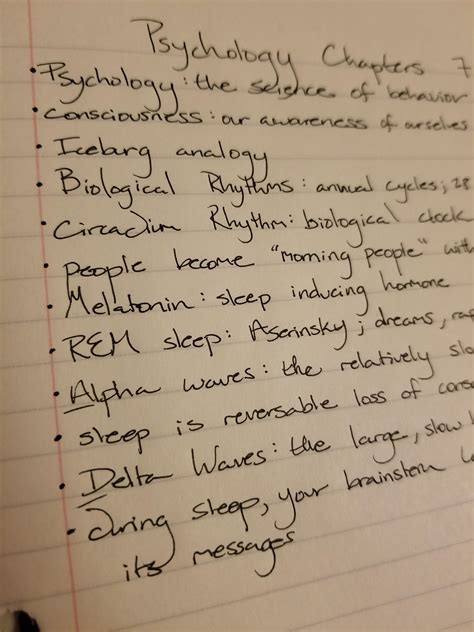 Psychology Chapters 7
• Psychology: the science of behavior
• consciousness: our awareness of ourselves
• Iceberg analogy
• Biological Rhythms: annual cycles; 28
• Circadium Rhythm: biological clock
• people become "morning people" with
• Melatonin: sleep inducing hormone
• REM sleep: Aserinsky; dreams, rap
• Alpha waves: the relatively slo
• sleep is reversable loss of cons
• Delta Waves: the large, slow
• during sleep, your brainstem
its messages